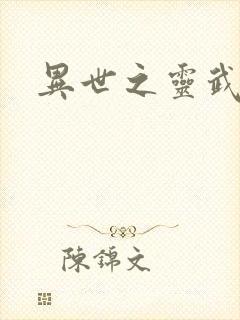 異世之靈武
陳錦文